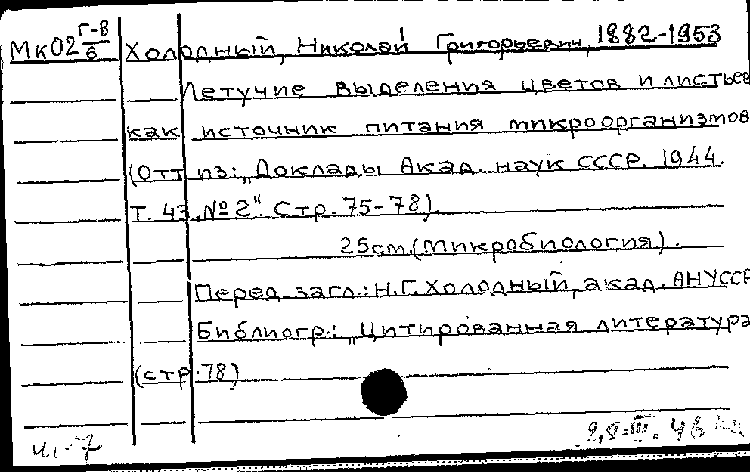 Мк02 Г-8/6 Холодный, Николай Григорьевич, 1882-1953
Летучие выделения цветов и листьев
как источник питания микроорганизмов
(Отт из: „Доклады Акад. наук СССР. 1944.
Т. 43, № 2“ Стр. 75-78)
25см. (Микробиология).
Перед загл.: Н.Г. Холодный, акад. АНУССР
Библиогр.: „Цитированная литература
(стр. 78)